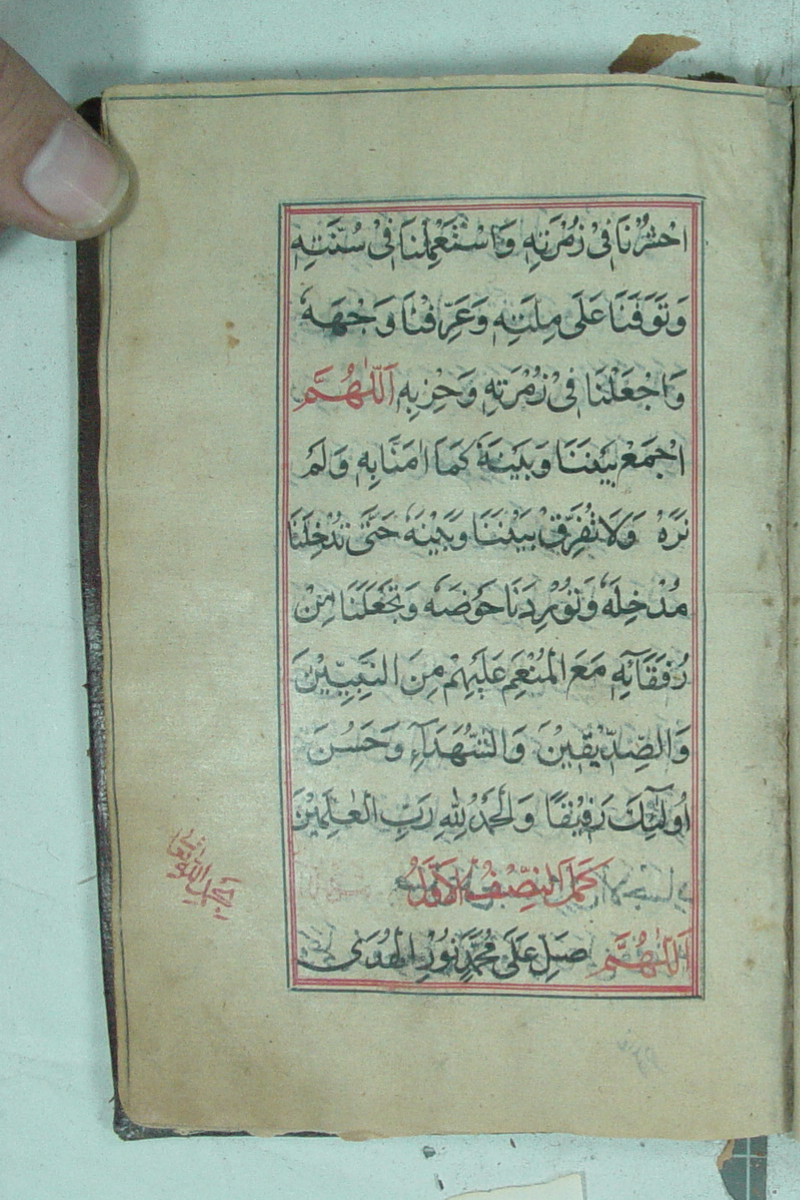 احْشُرْنَا فِىْ زُمْرَتِهٖ وَاسْتَعْمِلْنَا فِىْ سُنَّتِهٖ
وَتَوَفَّنَا عَلَى مِلَّتِهٖ وَعَرِّفْنَا وَجْهَهٗ
وَاجْعَلْنَا فِىْ زُمْرَتِهٖ وَحِزْبِهٖ اَللّٰهُمَّ
اجْمَعْ بَيْنَنَا وَبَيْنَهٗ كَمَا اٰمَنَّا بِهٖ وَلَمْ
نَرَهْ وَلَا تُفَرِّقْ بَيْنَنَا وَبَيْنَهٗ حَتّٰى تُدْخِلَنَا
مُدْخِلَهٗ وَتُوْرِدَنَا حَوْضَهٗ وَتَجْعَلَنَا مِنْ
رُفَقَآئِهٖ مَعَ الْمُنْعَمِ عَلَيْهِمْ مِنَ النَّبِيِّيْنَ
وَالصِّدِّيْقِيْنَ وَالشُّهَدَآءِ وَحَسُنَ
اُولٰٓئِكَ رَفِيْقًا وَالْحَمْدُ لِلّٰهِ رَبِّ الْعٰلَمِيْنَ
كَمُلَ النِّصْفُ الْاَوَّلُ
اَللّٰهُمَّ صَلِّ عَلَى مُحَمَّدٍ نُوْرِ الْهُدٰى